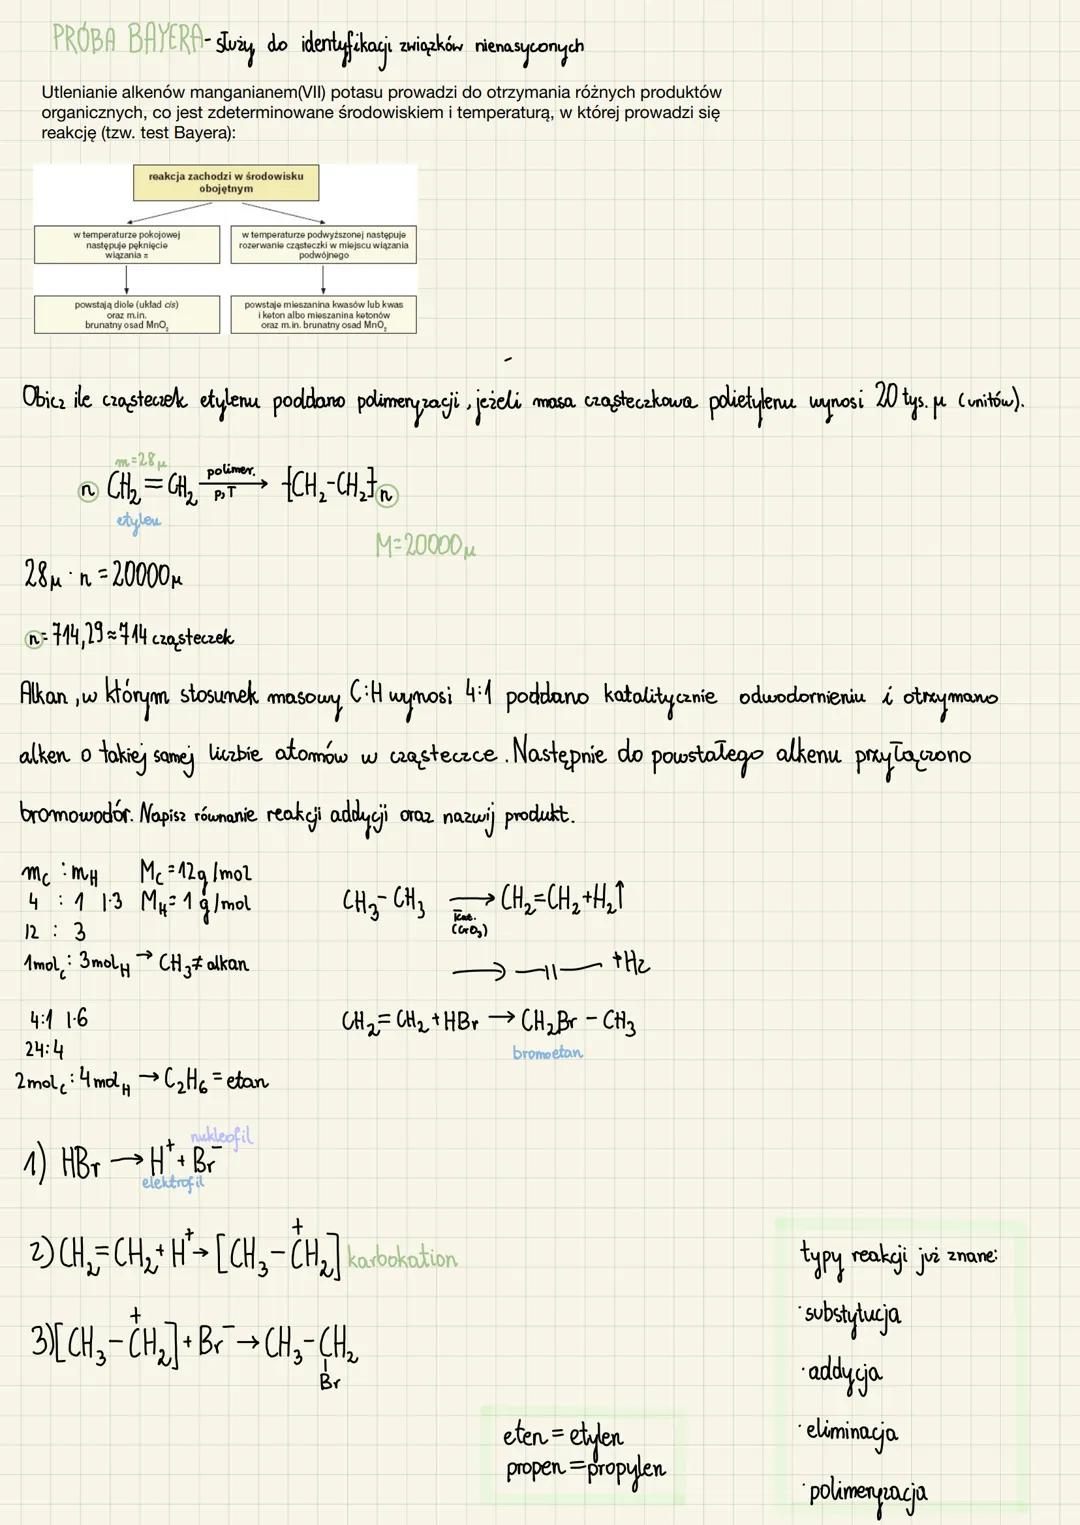 PRÓBA BAYERA - służy do identyfikacji związków nienasyconych
Utlenianie alkenów manganianem(VII) potasu prowadzi do otrzymania różnych produktów
organicznych, co jest zdeterminowane środowiskiem i temperaturą, w której prowadzi się
reakcję (tzw. test Bayera):
reakcja zachodzi w środowisku
obojętnym
w temperaturze pokojowej
następuje pęknięcie
wiązania π
w temperaturze podwyższonej następuje
rozerwanie cząsteczki w miejscu wiązania
podwójnego
powstają diole (układ cis)
oraz m.in.
brunatny osad MnO₂
powstaje mieszanina kwasów lub kwas
i keton albo mieszanina ketonów
oraz m.in. brunatny osad MnO₂
Obicz ile cząsteczek etylenu poddano polimeryzacji, jeżeli masa cząsteczkowa polietylenu wynosi 20 tys. μ (unitów).
m=28μ
n CH₂=CH₂ polimer. p,T → [CH₂-CH₂]n
etylen
M=20000μ
28μ · n = 20000μ
n = 714,29 ≈ 714 cząsteczek
Alkan, w którym stosunek masowy C:H wynosi 4:1 poddano katalitycznie odwodornieniu i otrzymano
alken o takiej samej liczbie atomów w cząsteczce. Następnie do powstałego alkenu przyłączono
bromowodór. Napisz równanie reakcji addycji oraz nazwij produkt.
mC : mH MC = 12g/mol
4 : 1 |·3 MH = 1 g/mol
12 : 3
1molC : 3molH → CH₃ ≠ alkan
4:1 |·6
24:4
2molC : 4molH → C₂H₆ = etan
CH₃-CH₃ → kat. (CrO₃) CH₂=CH₂+H₂↑
→ —||— +H2
CH₂=CH₂+HBr → CH₂Br-CH₃
bromoetan
nukleofil
1) HBr → H⁺ + Br⁻
elektrofil
2) CH₂=CH₂ + H⁺ → [CH₃-C⁺H₂] karbokation
3) [CH₃-C⁺H₂] + Br⁻ → CH₃-CH₂
Br
eten = etylen
propen = propylen
typy reakcji już znane:
· substytucja
· addycja
· eliminacja
· polimeryzacja